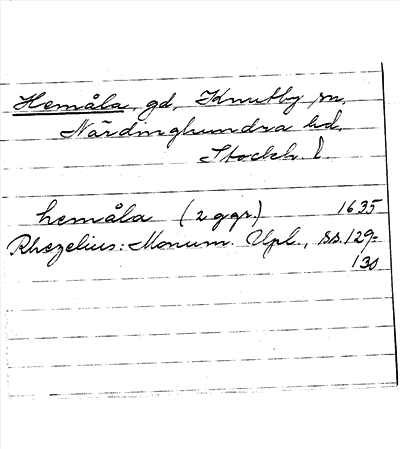 Hemåla, gd, Knutby sn,
Närdinghundra hd,
Stockh. l.
hemåla (2 ggr.) 1635
Rhezelius: Monum. Upl., ss. 129-
130